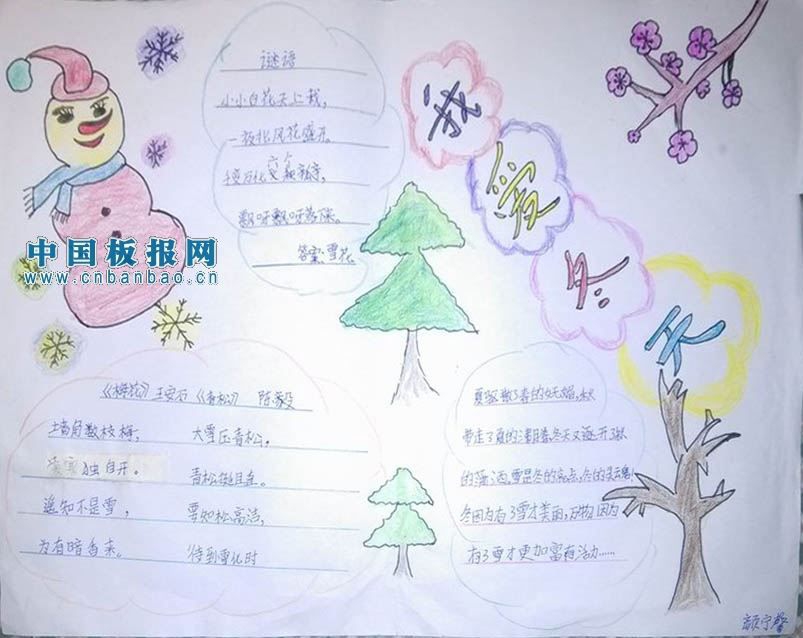 我爱冬天
谜语
小小白花天上栽，
一夜北风花盛开。
千变万化六个瓣，
飘呀飘呀落下来。
答案：雪花
中国板报网
www.cnbanbao.cn
《梅花》王安石《青松》陈毅
墙角数枝梅， 大雪压青松。
独自开。 青松挺且直。
遥知不是雪， 要知松高洁，
为有暗香来。 待到雪化时
夏驱散了春的妩媚，秋
带走了夏的清爽，冬天又逐开了秋
的潇洒。雪是冬的亮点，冬的灵魂！
冬因为有了雪才美丽，万物因为
有了雪才更加富有活力……